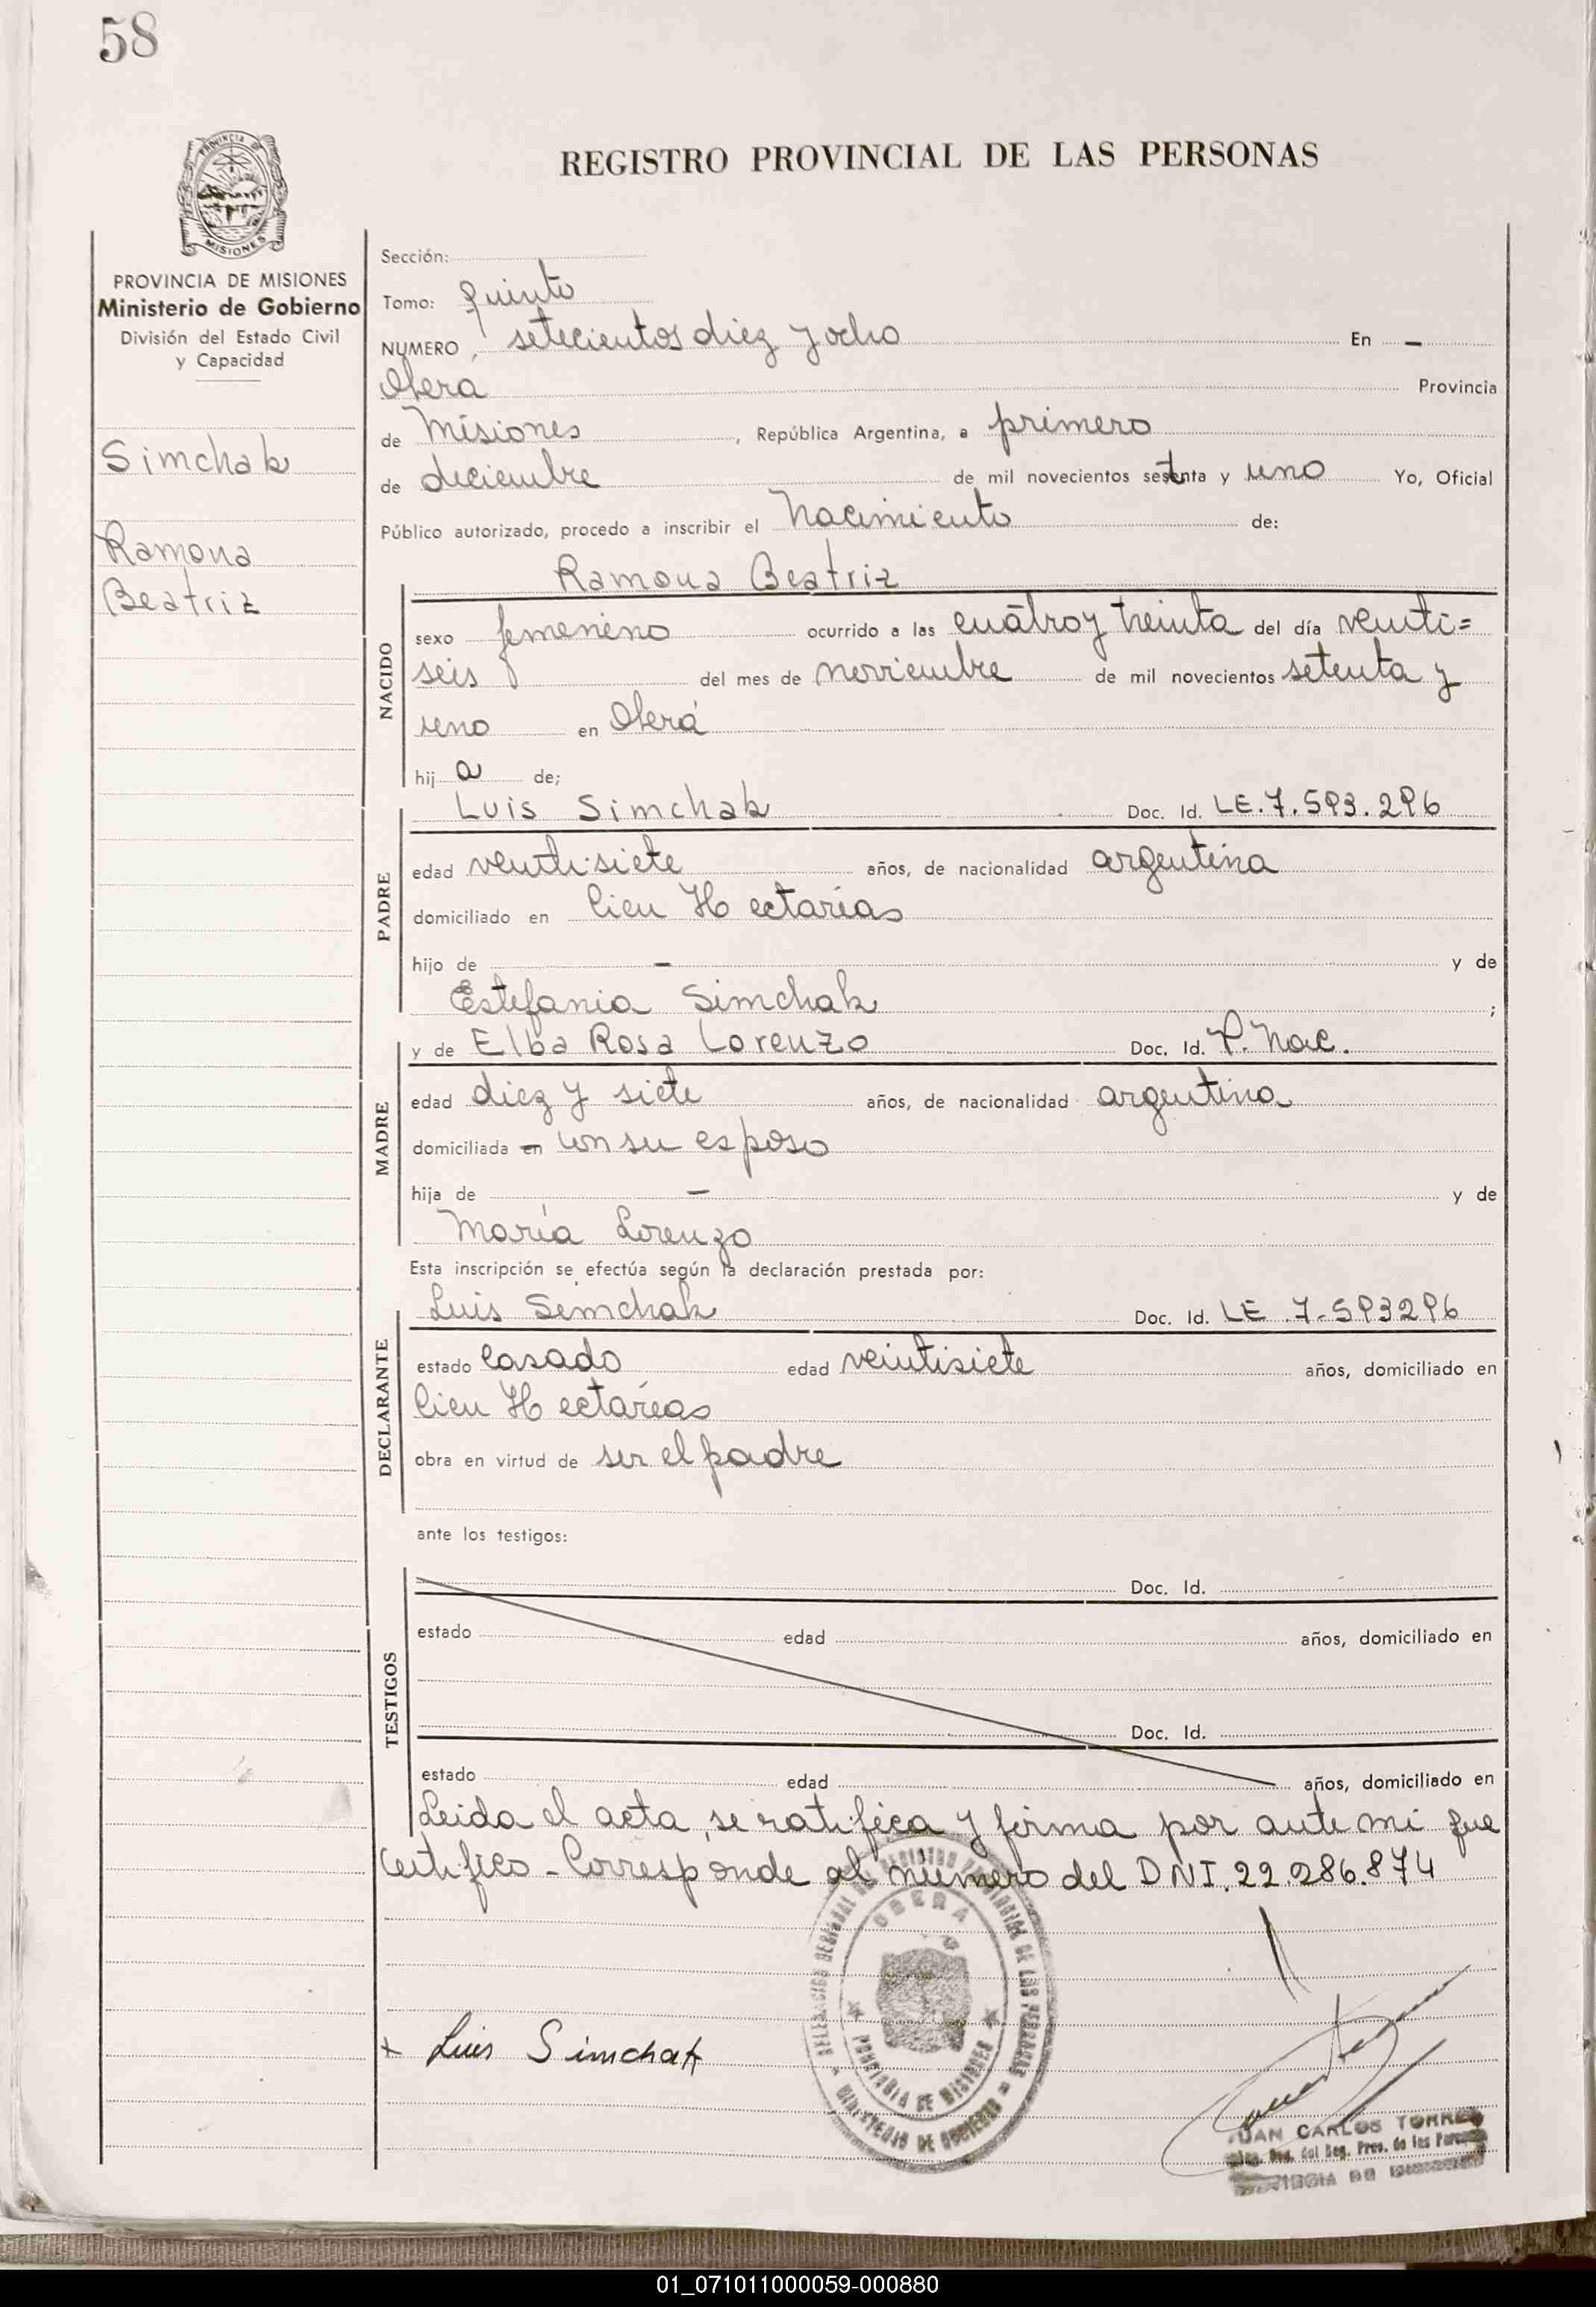 58
PROVINCIA DE MISIONES
REGISTRO PROVINCIAL DE LAS PERSONAS
PROVINCIA DE MISIONES
Ministerio de Gobierno
División del Estado Civil
y Capacidad
Simchak
Ramona
Beatriz
Sección:
Tomo: quinto
NUMERO, setecientos diez y ocho En –
Oberá Provincia
de Misiones, República Argentina, a primero
de diciembre de mil novecientos setenta y uno Yo, Oficial
Público autorizado, procedo a inscribir el Nacimiento de:
Ramona Beatriz
NACIDO
sexo femenino ocurrido a las cuatro y treinta del día veinti=
seis del mes de noviembre de mil novecientos setenta y
uno en Oberá
hij a de;
Luis Simchak Doc. Id. LE.7.593.296
PADRE
edad veintisiete años, de nacionalidad argentina
domiciliado en Cien Hectarias
hijo de – y de
Estefania Simchak ;
y de Elba Rosa Lorenzo Doc. Id. P. Nac.
MADRE
edad diez y siete años, de nacionalidad argentina
domiciliada en con su esposo
hija de – y de
María Lorenzo
Esta inscripción se efectúa según la declaración prestada por:
Luis Simchak Doc. Id. LE.7-593296
DECLARANTE
estado casado edad veintisiete años, domiciliado en
Cien Hectáreas
obra en virtud de ser el padre
ante los testigos:
Doc. Id.
TESTIGOS
estado edad años, domiciliado en
Doc. Id.
estado edad años, domiciliado en
Leida el acta, se ratifica y firma por ante mi que
Certifico - Corresponde al número del DNI.22.286.874
OBERA
PROVINCIA DE MISIONES
MINISTERIO DE GOBIERNO
+ Luis Simchak
JUAN CARLOS TORRES
01_071011000059-000880